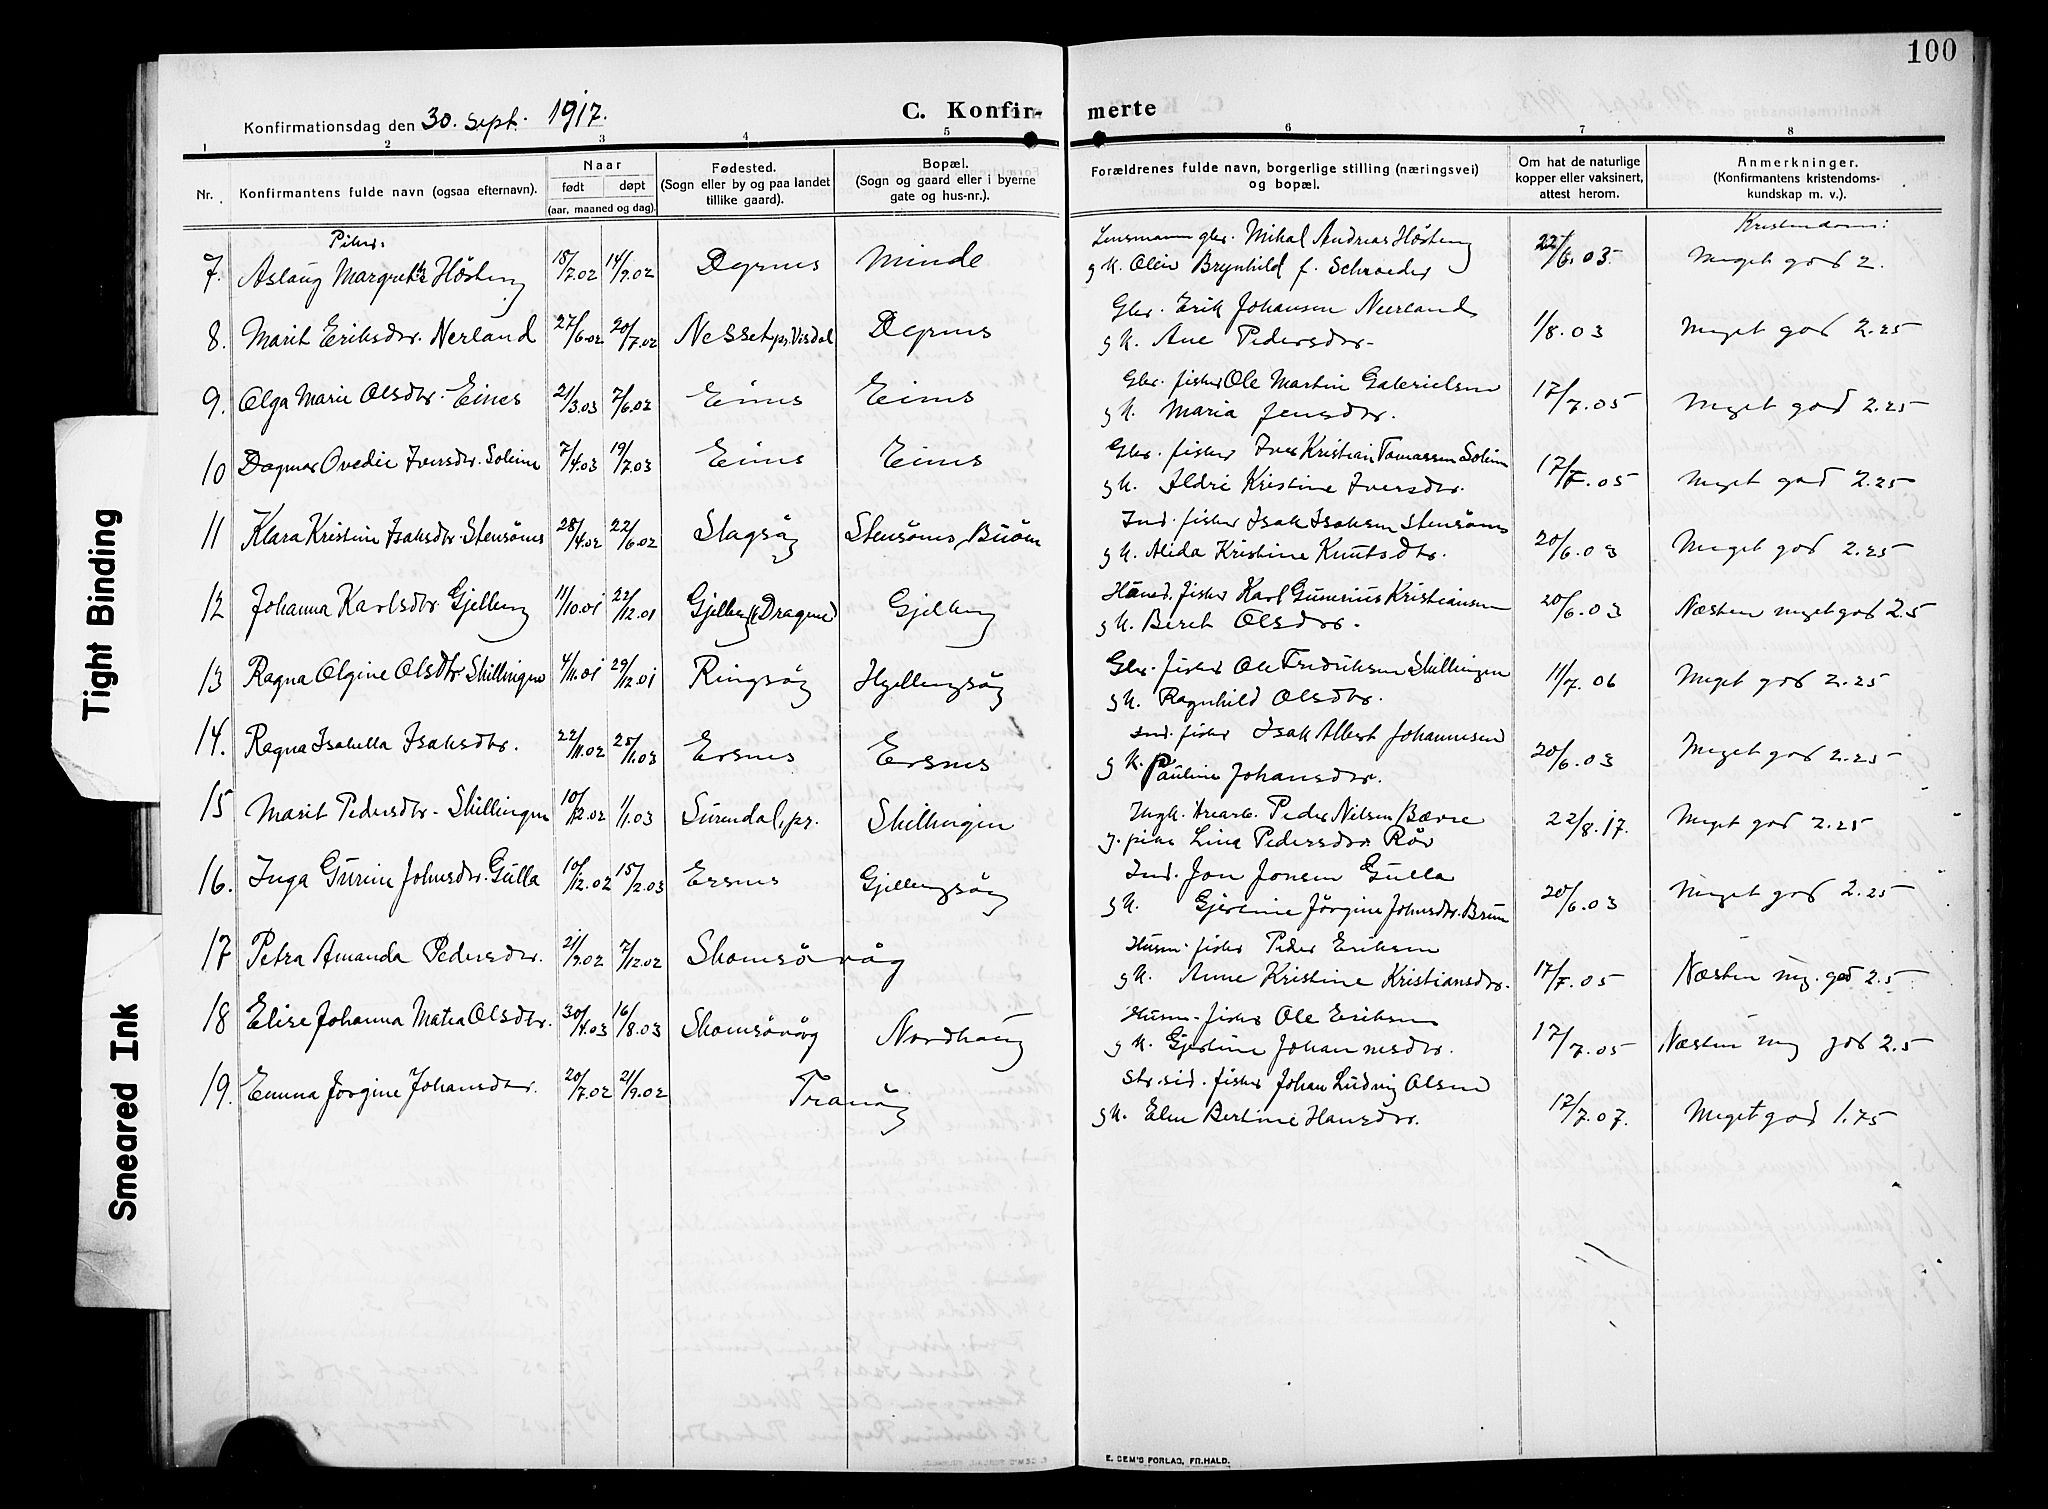 100
Konfirmationsdag den 30. sept. 1917.
C. Konfir- merte
1 2 3 4 5 6 7 8
Nr. Konfirmantens fulde navn (ogsaa efternavn). Naar født døpt (aar, maaned og dag). Fødested. (Sogn eller by og paa landet tillike gaard). Bopæl. (Sogn og gaard eller i byerne gate og hus-nr.). Forældrenes fulde navn, borgerlige stilling (næringsvei) og bopæl. Om hat de naturlige kopper eller vaksinert, attest herom. Anmerkninger. (Konfirmantens kristendoms-kundskap m. v.).
Piker. Kristendom:
7. Aslaug Margrethe Høsteng 18/7.02 14/9.02 Dyrnes Minde Lensmann gbr. Mikal Andreas Høsteng
g k. Olein Brynhild f. Schrøeder 22/6.03. Meget god 2.
8. Marit Eriksdtr. Nerland 27/6.02 20/7.02 Nesset pr. Visdal Dyrnes Gbr. Erik Johansen Neerland
g k. Ane Pedersdtr. 1/8.03 Meget god 2.25
9. Olga Marie Olsdtr. Eines 21/3.03 7/6.02 Eines Eines Gbr. fisker Ole Martin Gabrielsen
g k. Maria Jensdtr. 17/7.05 Meget god 2.25
10 Dagmar Ovedie Iversdtr. Soleim 7/4.03 19/7.03 Eines Eines Gbr. fisker Iver Kristian Tomassen Soleim
g k. Aldri Kristine Iversdtr. 17/7.05 Meget god 2.25
11 Klara Kristine Isaksdtr. Stensønes 28/4.02 22/6.02 Slagsøy Stensønes, Buøen Ind. fisker Isak Isaksen Stensønes
g k. Alida Kristine Knutsdtr. 20/6.03 Meget god 2.25
12 Johanna Karlsdtr Gjelleng 11/10.01 22/12.01 Gjelleng (Dragnes) Gjelleng Huusd. fisker Karl Gunerius Kristiansen
g k. Beret Olsdtr. 20/6.03 Næsten meget god 2.5
13 Ragna Olgine Olsdtr. Skillingen 4/11.01 29/12.01 Ringsøy Hjellengsøy Gbr. fisker Ole Fredriksen Skillingen
g k. Ragnhild Olsdtr. 11/7.06 Meget god 2.25
14. Ragna Isabella Isaksdtr. 22/11.02 25/1.03 Ersnes Ersnes Ind. fisker Isak Albert Johannesen
g k. Pauline Johansdtr. 20/6.03 Meget god 2.25
15 Marit Pedersdtr. Skillingen 10/12.02 1/1.03 Surendal, pr. Skillingen Ungk. Peder Nilsen Bævre
g. pike Lina Pedersdtr Røv 22/8.17. Meget god 2.25
16. Inga Gurine Johnsdtr. Gulla 10/12.02 15/2.03 Ersnes Gjellengsøy Ind. Jon Jonsen Gulla
g k. Gjertine Jørgine Johnsdtr. Bruun 20/6.03 Meget god 2.25
17 Petra Amanda Pedersdtr. 21/9.02 7/12.02 Skomsøvåg Husm. fisker Peder Eriksen
g k. Anne Kristine Kristiansdtr. 17/7.05 Næsten mg. god 2.5
18 Elise Johanna Matea Olsdtr. 30/4.03 16/8.03 Skomsøvåg Nordhaug Husm. fisker Ole Eriksen
g k. Gjertine Johannesdtr. 17/7.05 Næsten mg god 2.5
19. Emma Jørgine Johansdtr. 20/7.02 21/9.02 Tranøy Str.sid. fisker Johan Ludvig Olsen
g k. Elen Bertine Hansdtr. 17/7.07. Meget god 1.75
Tight Binding
Smeared Ink
E. SEM'S FORLAG, FR.HALD.